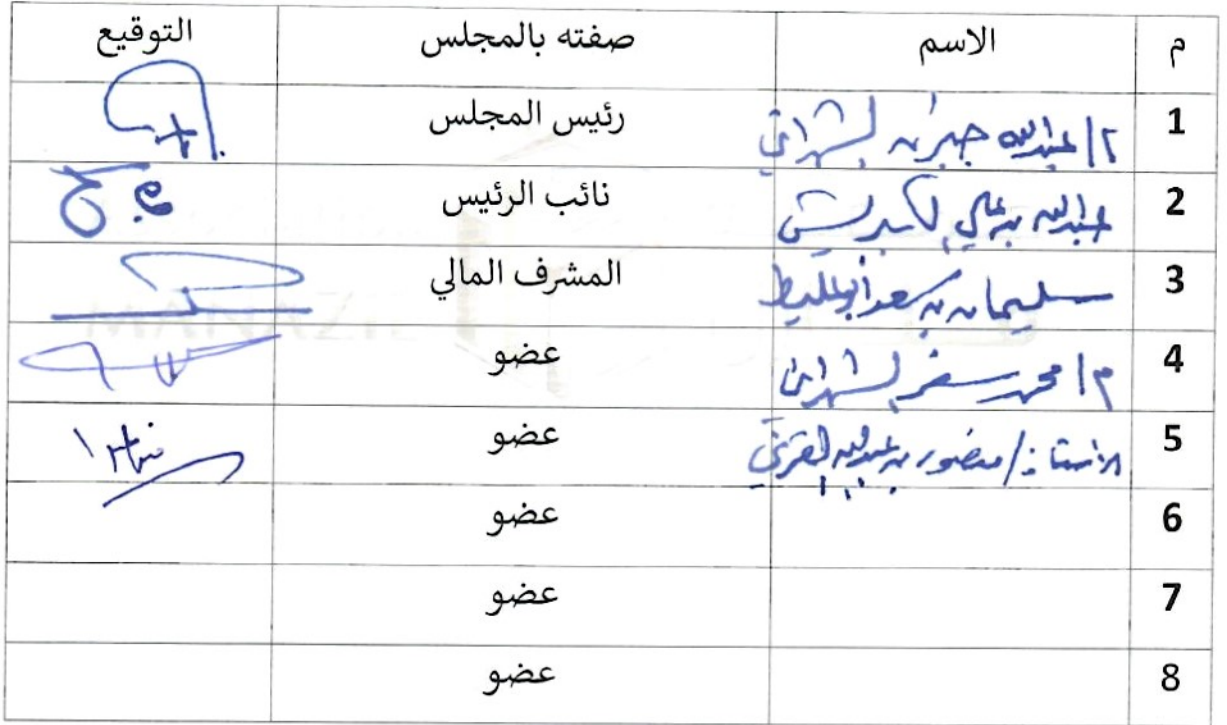 م الاسم صفته بالمجلس التوقيع
1 م/ عبدالله جبران الشهراني رئيس المجلس
2 عبدالله بن علي نائب الرئيس
3 سليمان بن سعد ابوالمليط المشرف المالي
4 م/ محمد سفر الشهراني عضو
5 الاستاذ/ منصور بن عبدالله القرني عضو
6 عضو
7 عضو
8 عضو
MANAZIL